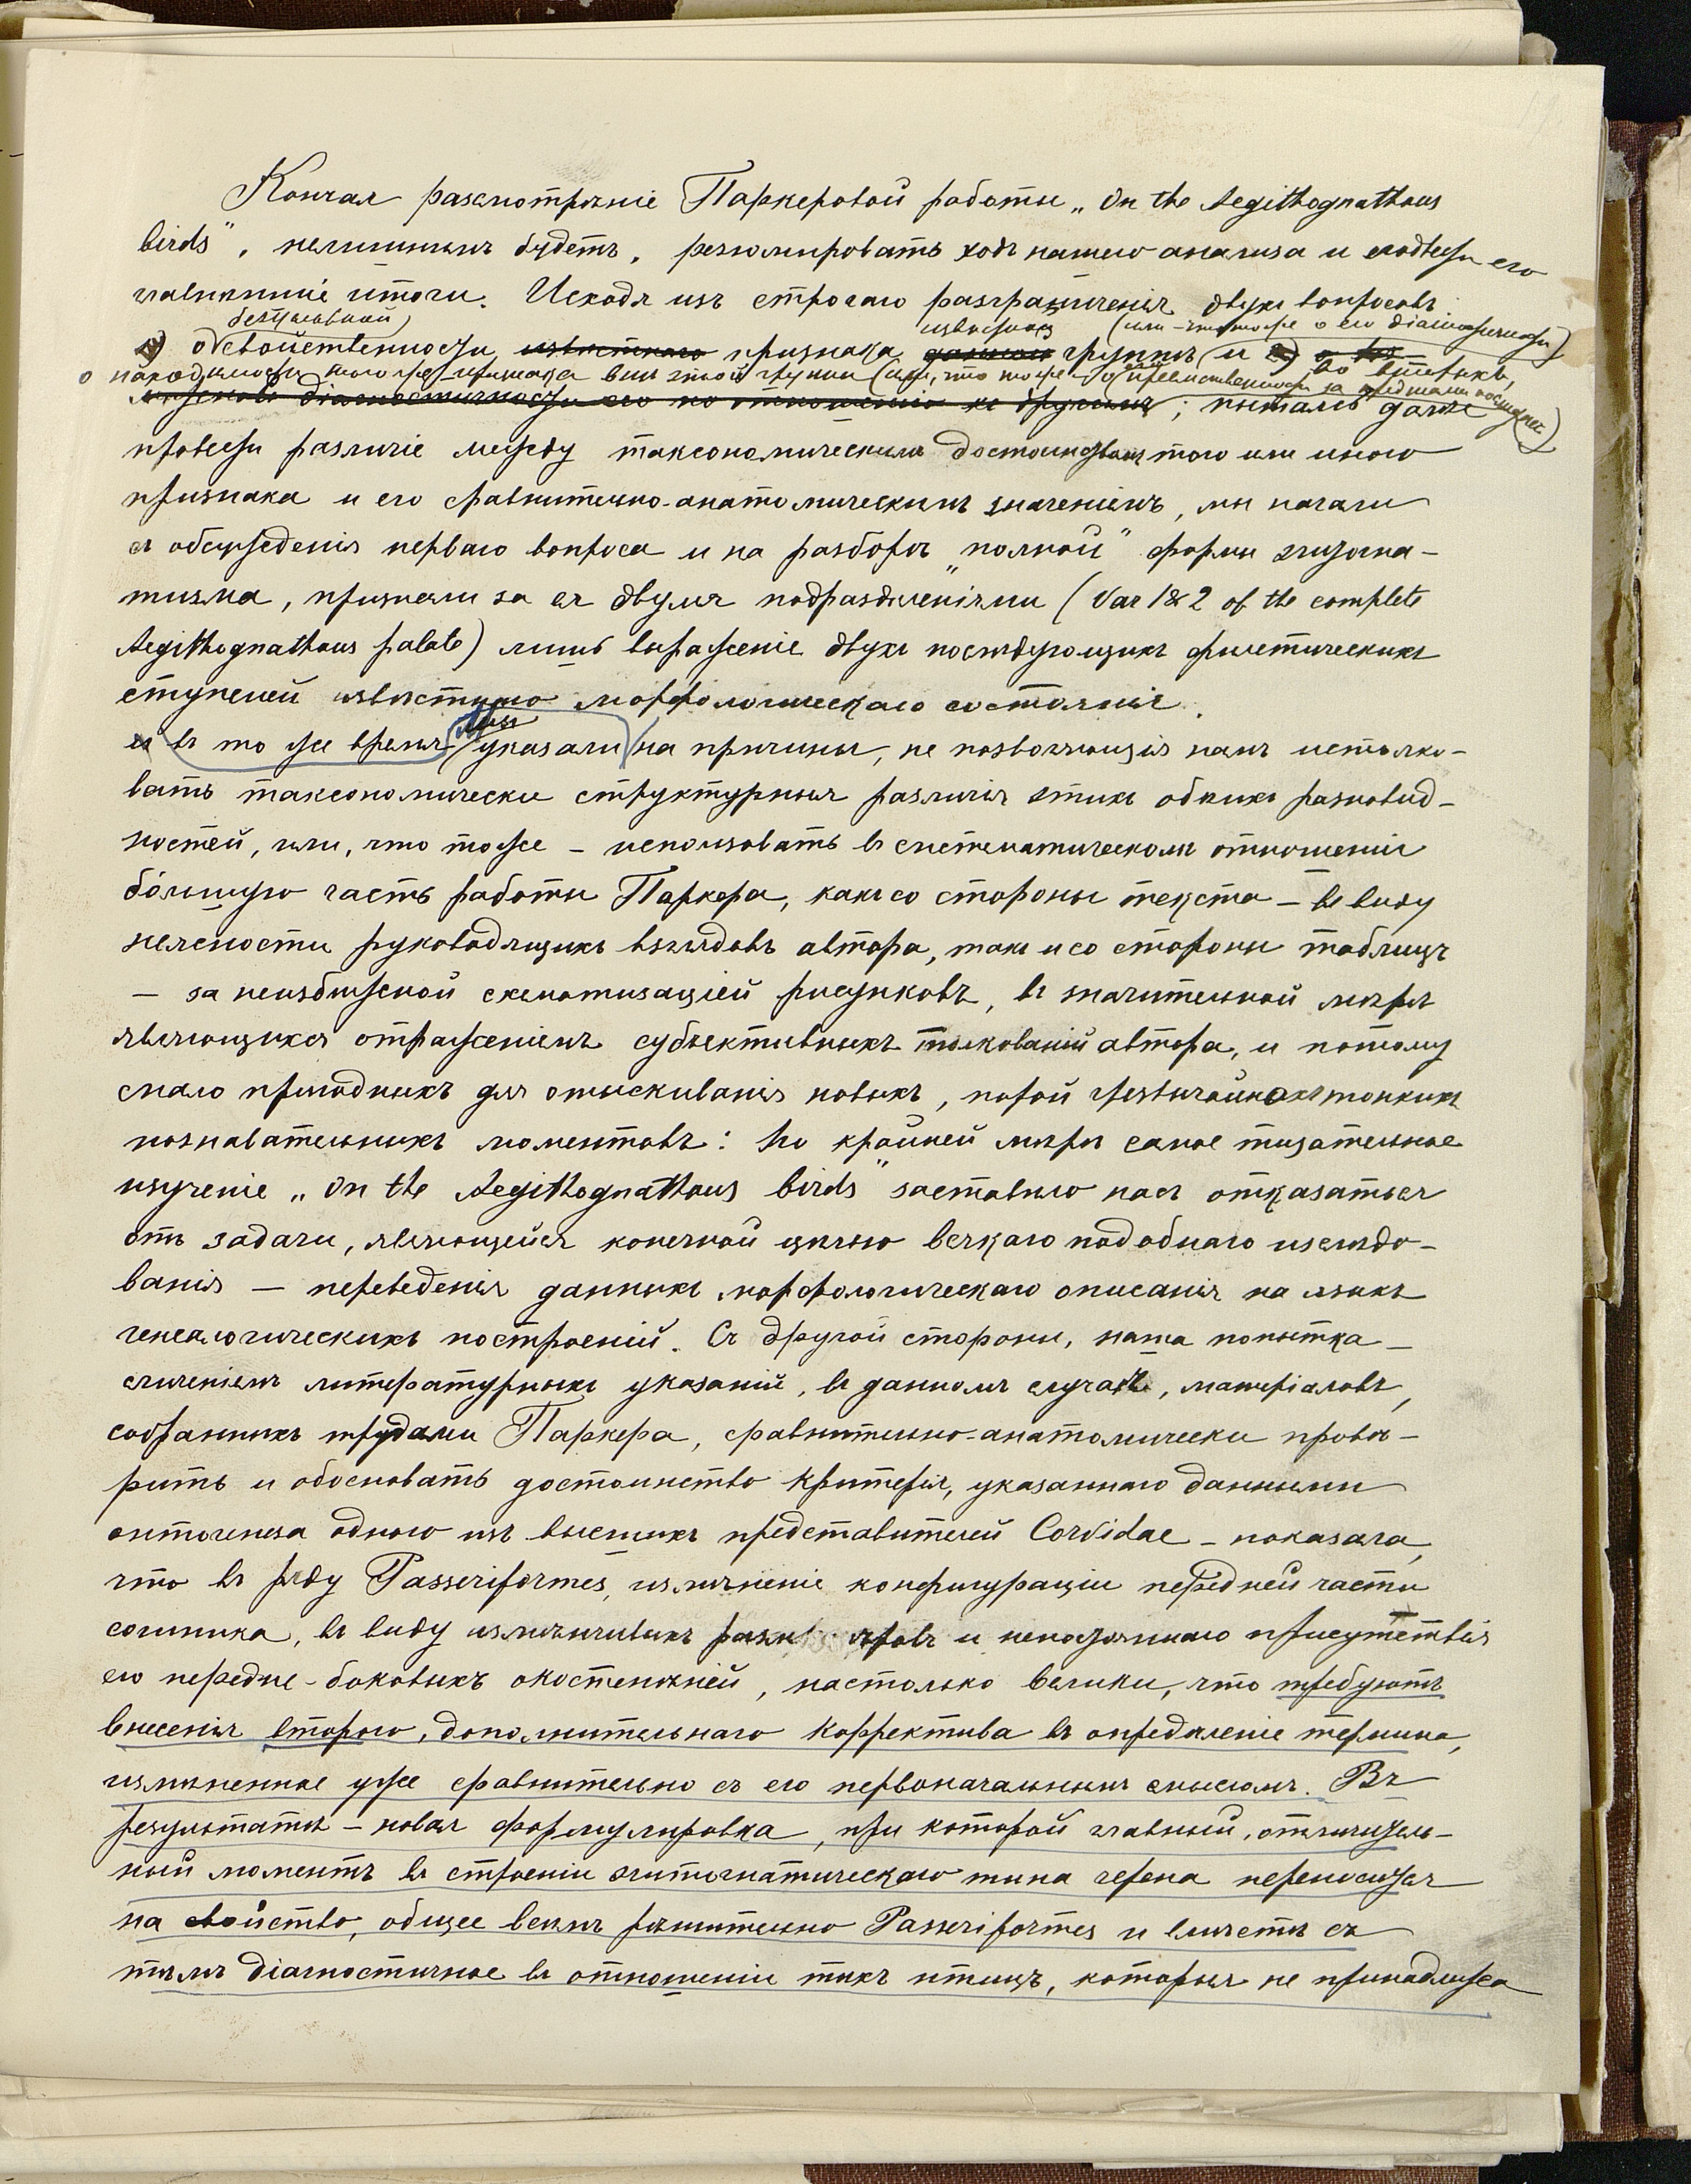 Кончая разсмотрѣніе Паркеровой работы „On the Aegithognathous
birds“, нелишнимъ будетъ, резюмировать ходъ нашего анализа и свести его
главнѣйшіе итоги. Исходя изъ строгаго разграниченія двухъ вопросовъ
безусловной извѣстной (или – что тоже о его діагностичности)
о свойственности извѣстнаго признака данной группѣ и
о находимости того же признака внѣ этой группы (или, что тоже – о во вторыхъ,
діагностичности его по отношенію къ другимъ; пытаясь далѣе
провести различіе между таксономическимъ достоинствомъ того или иного
признака и его сравнительно-анатомическимъ значеніемъ, мы начали
съ обсужденія перваго вопроса и на разборѣ „полной“ формы эгитогна-
тизма, признали за ея двумя подраздѣленіями (Var 1 & 2 of the complete
Aegithognathous palate) лишь выраженіе двухъ послѣдующихъ филетическихъ
ступеней извѣстнаго морфологическаго состоянія.
въ то же время указали на причины, не позволяющія намъ истолко-
вать таксономически структурныя различія этихъ обѣихъ разновид-
ностей, или, что тоже – использовать въ систематическомъ отношеніи
бо́льшую часть работы Паркера, какъ со стороны текста – въ виду
неясности руководящихъ взглядовъ автора, такъ и со стороны таблицъ
– за неизбѣжной схематизаціей рисунковъ, въ значительной мѣрѣ
являющихся отраженіемъ субъективныхъ толкованій автора, и потому
мало пригодныхъ для отыскиванія новыхъ, порой чрезвычайно тонкихъ
познавательныхъ моментовъ: по крайней мѣрѣ самое тщательное
изученіе „On the Aegithognathous birds“ заставило насъ отказаться
отъ задачи, являющейся конечной цѣлью всякаго подобнаго изслѣдо-
ванія – переведенія данныхъ морфологическаго описанія на языкъ
генеалогическихъ построеній. Съ другой стороны, наша попытка –
сличеніемъ литературныхъ указаній, въ данномъ случаѣ, матеріаловъ,
собранныхъ трудами Паркера, сравнительно-анатомически провѣ-
рить и обосновать достоинство критерія, указаннаго данными
онтогенеза одного изъ высшихъ представителей Corvidae – показала,
что въ ряду Passeriformes, измѣненіе конфигураціи передней части
сошника, въ виду измѣнчивыхъ и непостояннаго присутствія
его передне-боковыхъ окостенѣній, настолько велики, что требуютъ
внесенія второго, дополнительнаго корректива въ опредѣленіе термина,
измѣненное уже сравнительно съ его первоначальнымъ смысломъ. Въ
результатѣ – новая формулировка, при которой главный, отличитель-
ный моментъ въ строеніи эгитогнатическаго типа черепа переносится
на свойство, общее всѣмъ рѣшительно Passeriformes и вмѣстѣ съ
тѣмъ діагностичное въ отношеніи тѣхъ птицъ, которыя не принадлежа